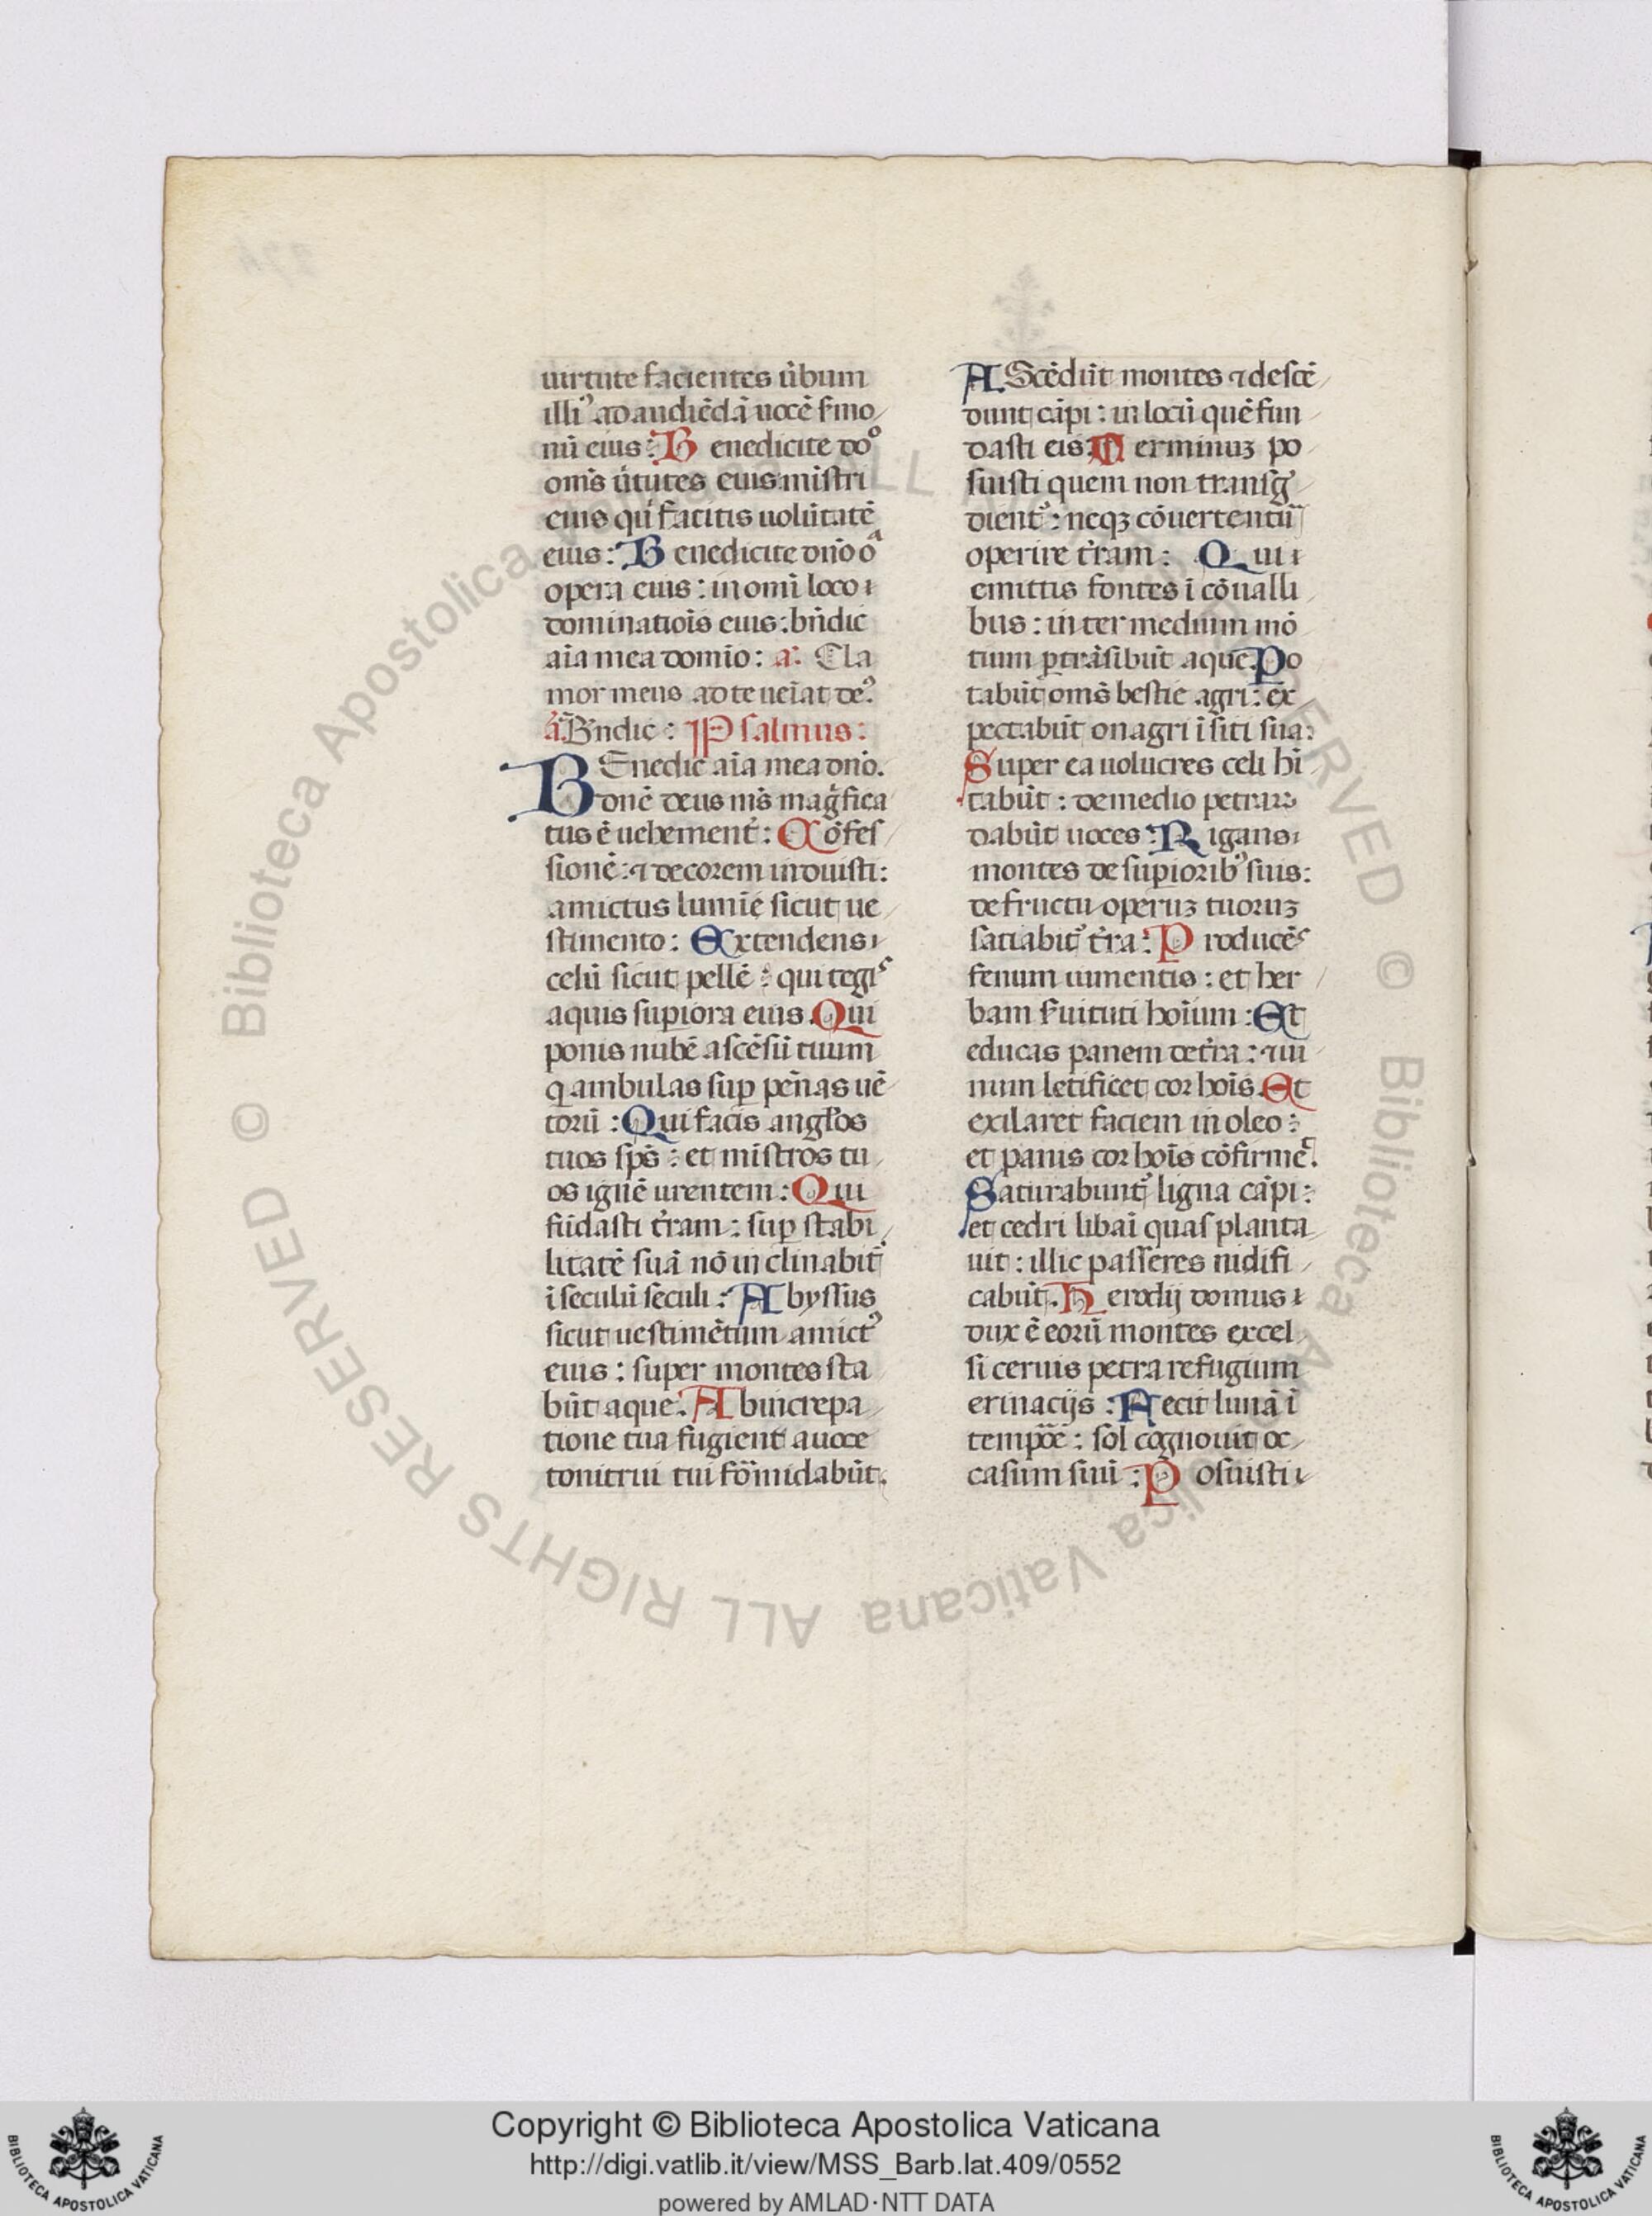 uirtute facientes ũbum
illi⁹ ad audiẽdã uocẽ ẜmo
nũ eius: B enedicite dõo
om̃s ũtutes euis mĩstri
eius qui facitis uolũtatẽ
eius: B enedicite dño oa
opera euis: in omĩ loco
dominatiõis euis: bñdic
aĩa mea domĩo: a: Cla
mor meus ad te ueĩat de⁹
ã Bñdic: Psalmus:
BEnedic aĩa mea dño.
donẽ deus mẽs mag̃fica
tus ẽ uehement̃: Cõfes
sionẽ: ⁊ decorem induisti:
amictus lumiẽ sicut ue
stimento: Extendens
celũ sicut pellẽ: qui tegis
aquis suꝑiora euis. Qui
ponis nubẽ ascẽsũ tuum
q̃ ambulas suꝑ peñas uẽ
torũ: Qui facis angłos
tuos sp̃s: et mĩstros tu
os ignẽ urentem: Qui
fũdasti t̃ram: suꝑ stabi
litatẽ suã nõ inclinabit̃
ĩ seculũ sẽculi: Abyssus
sicut uestimẽtum amict⁹
euis: super montes sta
bũt aque. Ab increpa
tione tua fugient a uoce
tonitrui tui foñmidabũt.
AScẽdũt montes ⁊ descẽ
dunt cãpi: in locũ quẽ fun
dasti eis. T erminuꝫ po
suisti quem non transg̃
dient⁹: neqꝫ cõuertentũ
operire t̃ram: Qui
emittis fontes ĩ cõualli
bus: inter medium mõ
tium ꝑtrãsibũt aque. Po
tabũt om̃s bestie agri: ex
pectabũt onagri ĩ siti sua:
Super ea uolucres celi hĩ
tabũt: de medio petraꝝ
dabũt uoces: R igans
montes de suꝑiorib⁹ suis:
de fructu operuꝫ tuoruꝫ
satiabit̃ t̃ra: P roducẽs
fenum iumentis: et her
bam ẜuituti hoĩum: Et
educas panem de t̃ra: ⁊ ui
num letificet cor hoĩs. Et
exilaret faciem in oleo:
et panis cor hoĩs cõfirmet.
Saturabunt̃ ligna cãpi:
et cedri libaĩ quas planta
uit: illic passeres nidifi
cabũt. H erodij domus
dux ẽ eorũ montes excel
si ceruis petra refugium
erinacijs: Fecit lunã ĩ
tempoře: sol cognouit oc
casum suũ: P osuisti
Copyright © Biblioteca Apostolica Vaticana
http://digi.vatlib.it/view/MSS_Barb.lat.409/0552
powered by AMLAD·NTT DATA